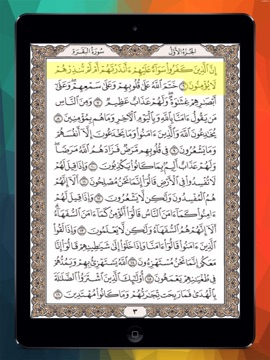 سُورَةُ البَقَرَةِ الجُزءُ الأَوَّلُ
إِنَّ الَّذِينَ كَفَرُوا سَوَآءٌ عَلَيْهِمْ ءَأَنذَرْتَهُمْ أَمْ لَمْ تُنذِرْهُمْ
لَا يُؤْمِنُونَ ٦ خَتَمَ اللَّهُ عَلَىٰ قُلُوبِهِمْ وَعَلَىٰ سَمْعِهِمْ وَعَلَىٰ
أَبْصَٰرِهِمْ غِشَٰوَةٌ وَلَهُمْ عَذَابٌ عَظِيمٌ ٧ وَمِنَ النَّاسِ
مَن يَقُولُ ءَامَنَّا بِاللَّهِ وَبِالْيَوْمِ الْءَاخِرِ وَمَا هُم بِمُؤْمِنِينَ ٨
يُخَٰدِعُونَ اللَّهَ وَالَّذِينَ ءَامَنُوا وَمَا يَخْدَعُونَ إِلَّا أَنفُسَهُمْ
وَمَا يَشْعُرُونَ ٩ فِي قُلُوبِهِم مَّرَضٌ فَزَادَهُمُ اللَّهُ مَرَضًا
وَلَهُمْ عَذَابٌ أَلِيمٌ بِمَا كَانُوا يَكْذِبُونَ ١٠ وَإِذَا قِيلَ لَهُمْ
لَا تُفْسِدُوا فِي الْأَرْضِ قَالُوا إِنَّمَا نَحْنُ مُصْلِحُونَ ١١ أَلَا إِنَّهُمْ
هُمُ الْمُفْسِدُونَ وَلَٰكِن لَّا يَشْعُرُونَ ١٢ وَإِذَا قِيلَ لَهُمْ
ءَامِنُوا كَمَا ءَامَنَ النَّاسُ قَالُوا أَنُؤْمِنُ كَمَا ءَامَنَ السُّفَهَآءُ
أَلَا إِنَّهُمْ هُمُ السُّفَهَآءُ وَلَٰكِن لَّا يَعْلَمُونَ ١٣ وَإِذَا لَقُوا
الَّذِينَ ءَامَنُوا قَالُوا ءَامَنَّا وَإِذَا خَلَوْا إِلَىٰ شَيَٰطِينِهِمْ قَالُوا إِنَّا
مَعَكُمْ إِنَّمَا نَحْنُ مُسْتَهْزِءُونَ ١٤ اللَّهُ يَسْتَهْزِئُ بِهِمْ وَيَمُدُّهُمْ
فِي طُغْيَٰنِهِمْ يَعْمَهُونَ ١٥ أُولَٰئِكَ الَّذِينَ اشْتَرَوُا الضَّلَٰلَةَ
بِالْهُدَىٰ فَمَا رَبِحَت تِّجَٰرَتُهُمْ وَمَا كَانُوا مُهْتَدِينَ ١٦
٣